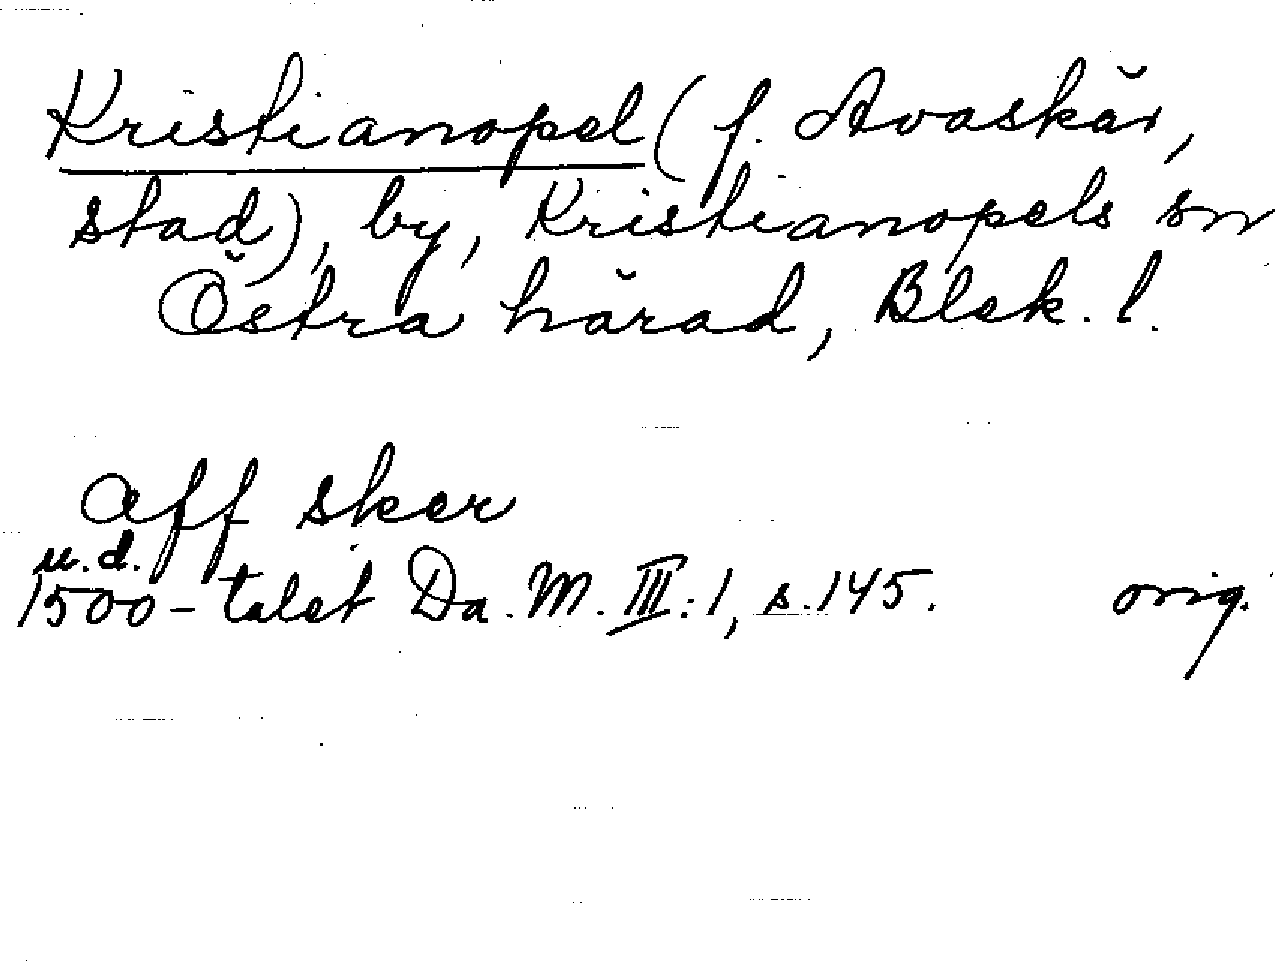 Kristianopel (f. Avaskär,
stad), by, Kristianopels sn
Östra härad, Blek. l.
Aff sker
u.d.
1500-talet Da. M. III:1, s. 145. orig.